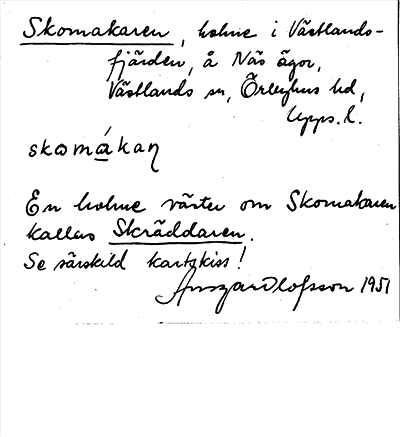 Skomakaren, holme i Västlands-
fjärden, å Näs ägor,
Västlands sn, Örbyhus hd,
Upps. l.
skomákaɳ
En holme väster om Skomakaren
kallas Skräddaren.
Se särskild kartskiss!
Ansgar Olofsson 1951